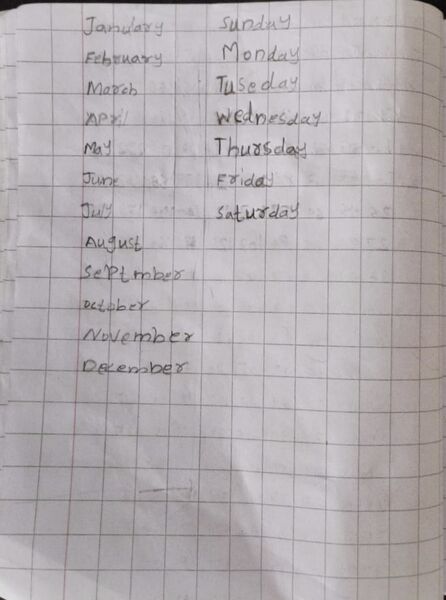 Janulary Sunday
February Monday
March Tuseday
April Wednesday
May Thursday
June Friday
July Saturday
August
Septmber
October
November
December